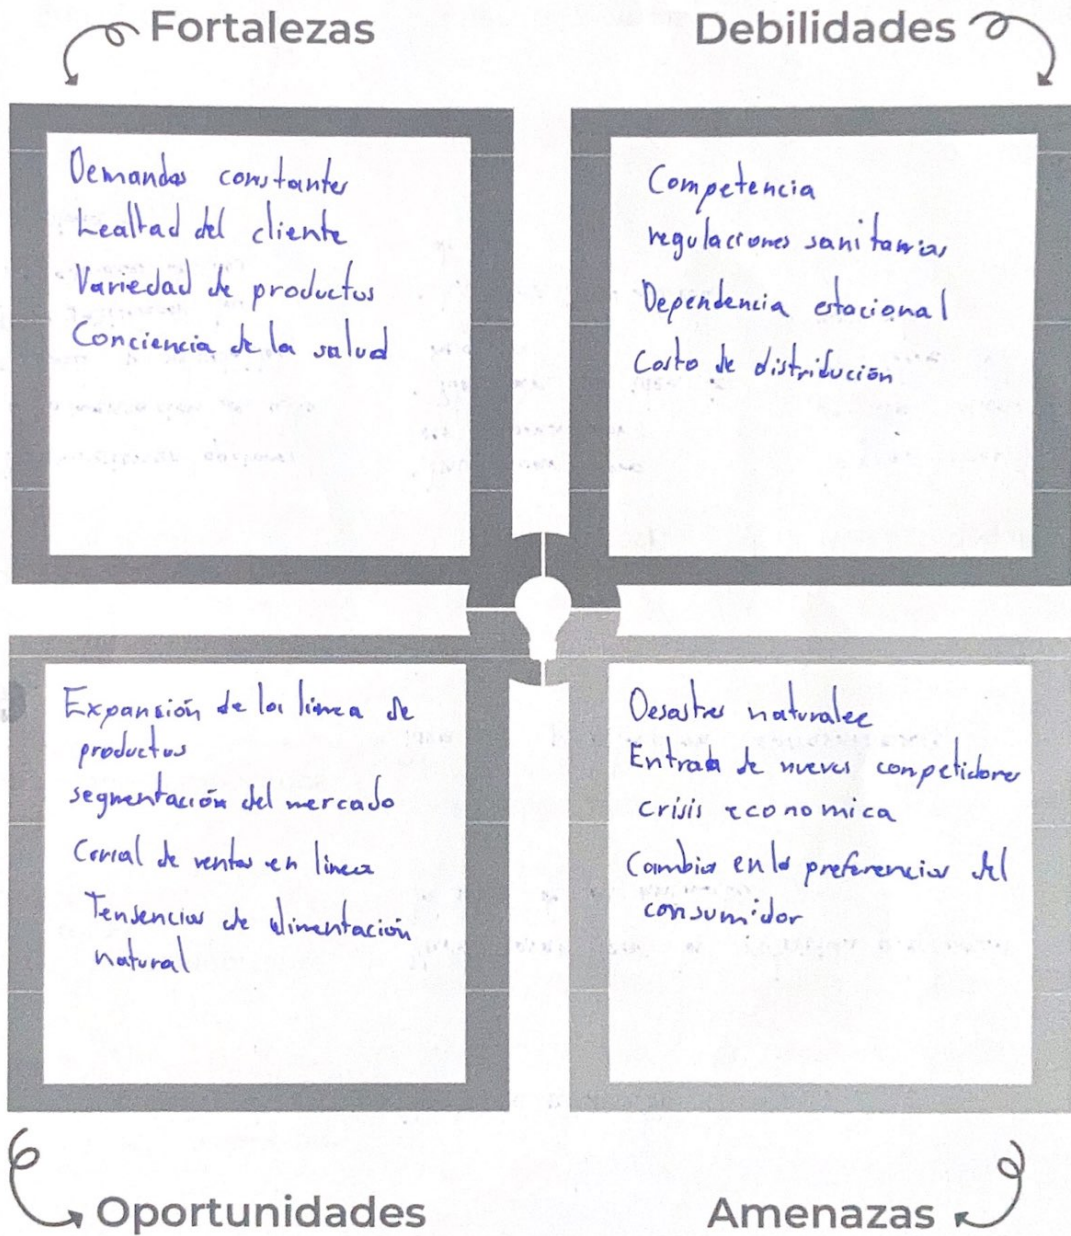 Fortalezas
Demandas constantes
Lealtad del cliente
Variedad de productos
Conciencia de la salud
Debilidades
Competencia
regulaciones sanitarias
Dependencia estacional
Costo de distribución
Expansión de la linea de
productos
segmentación del mercado
de ventas en linea
Tensencias de alimentación
natural
Oportunidades
Desastres naturales
Entrada de nuevos competidores
crisis economica
Cambios en la preferencias del
consumidor
Amenazas